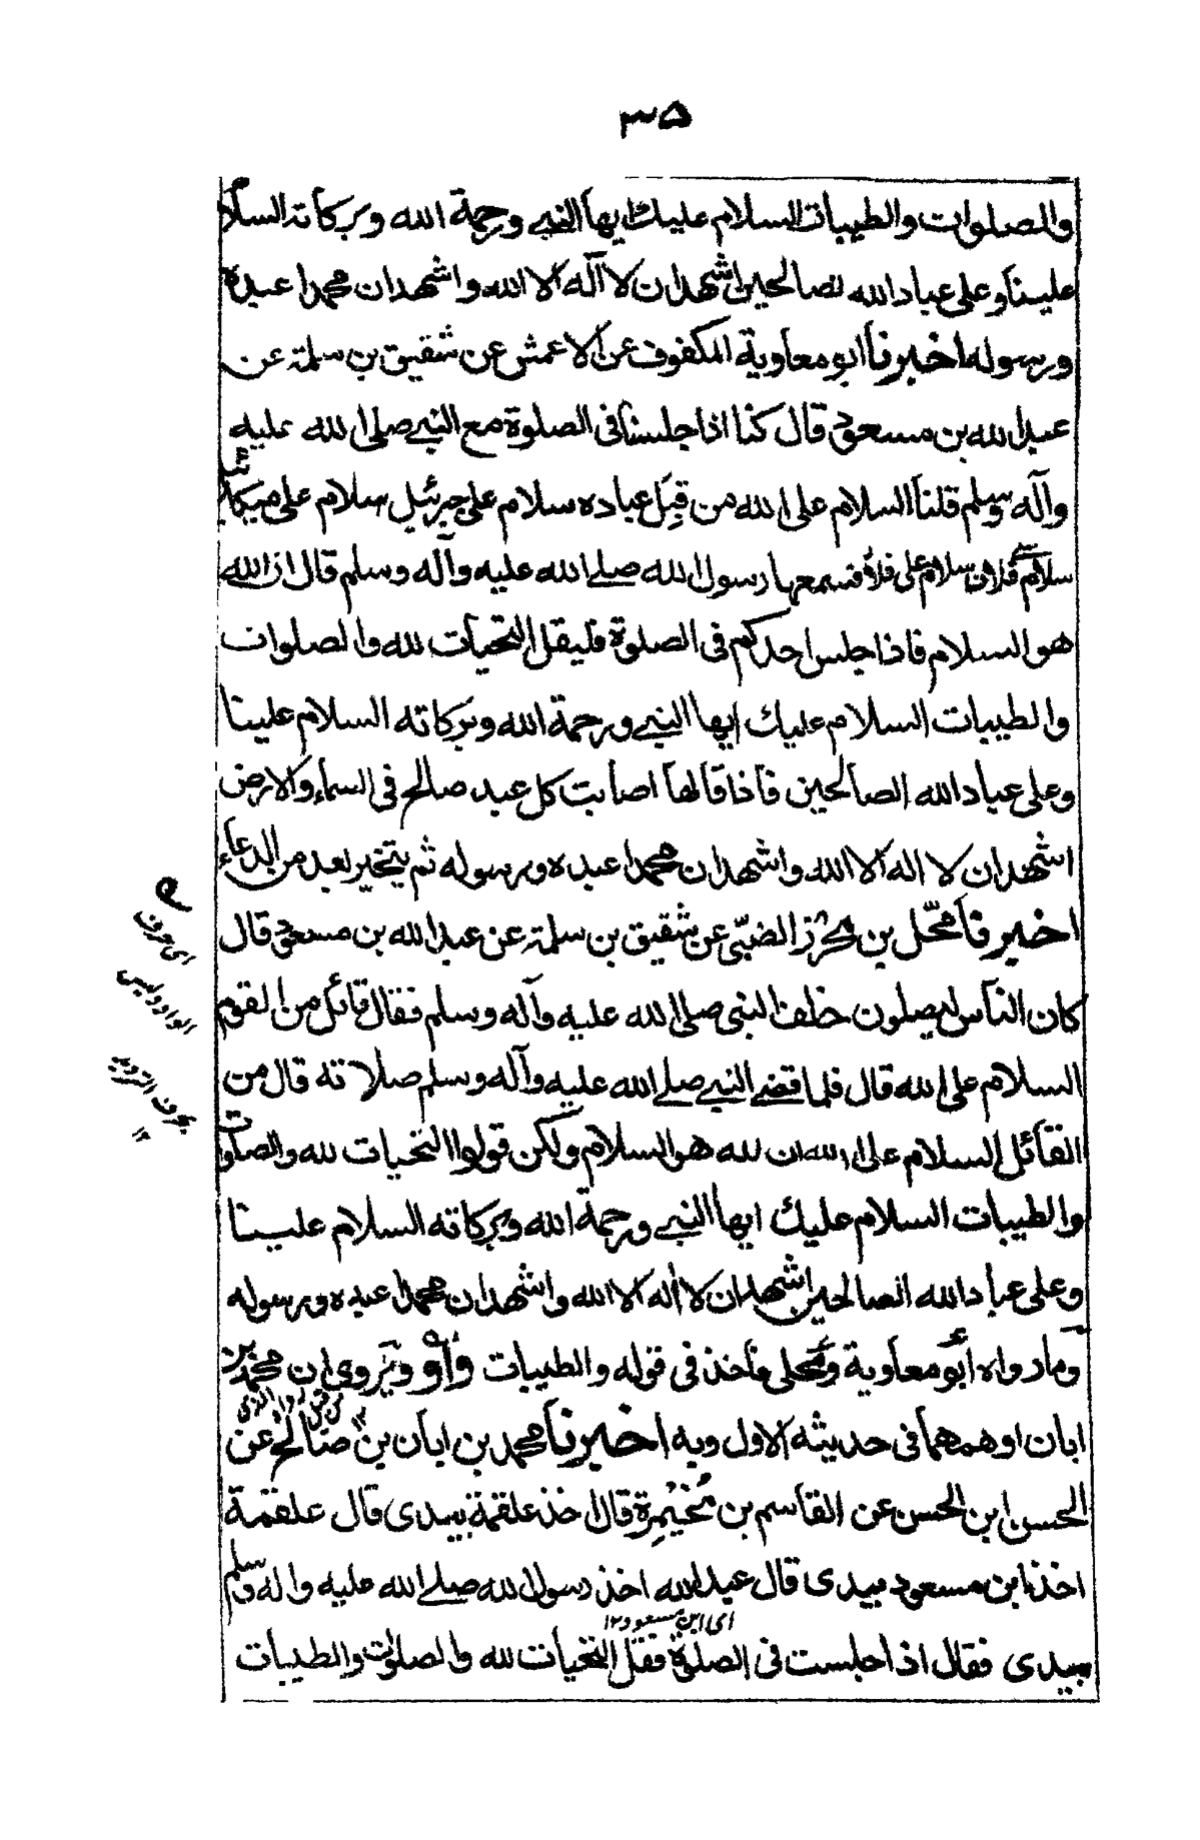 ٣٥
والصلوات والطيبات السلام عليك ايها النبي ورحمة الله وبركاته السلام
علينا وعلى عباد الله الصالحين اشهد ان لا آله الا الله واشهد ان محمدا عبده
ورسوله اخبرنا ابو معاوية المكفوف عن الاعمش عن شقيق بن سلمة عن
عبد الله بن مسعود قال كنا اذا جلسنا في الصلوة مع النبي صلى الله عليه
وآله وسلم قلنا السلام على الله من قبل عباده سلام على جبرئيل سلام على ميكائيل
سلام على فلان سلام على فلان فسمعها رسول الله صلى الله عليه وآله وسلم قال ان الله
هو السلام فاذا جلس احدكم في الصلوة فليقل التحيات لله والصلوات
والطيبات السلام عليك ايها النبي ورحمة الله وبركاته السلام علينا
وعلى عباد الله الصالحين فاذا قالها اصابت كل عبد صالح في السماء والارض
اشهد ان لا اله الا الله واشهد ان محمدا عبده ورسوله ثم يتخير بعد من الدعاء
اخبرنا محّل بن محرز الضبّي عن شقيق بن سلمة عن عبد الله بن مسعود قال
كان الناس يصلون خلف النبي صلى الله عليه وآله وسلم فقال قائل من القوم
السلام على الله قال فلما قضى النبي صلى الله عليه وآله وسلم صلاته قال من
القائل السلام على الله ان لله هو السلام ولكن قولوا التحيات لله والصلوات
والطيبات السلام عليك ايها النبي ورحمة الله وبركاته السلام علينا
وعلى عباد الله الصالحين اشهد ان لا اله الا الله واشهد ان محمدا عبده ورسوله
وما رواه ابو معاوية ومحلى ناخذ في قوله والطيبات واو ويروى ان محمد بن
ابان اوهمهما في حديثه الاول وبه اخبرنا محمد بن ابان بن صالح عن
الحسن ابن الحسن عن القاسم بن مُخَيْمِرة قال اخذ علقمة بيدى قال علقمة
اخذ ابن مسعود بيدى قال عبد الله اخذ رسول الله صلى الله عليه واله وسلم
اى ابن مسعود ١٢
بيدى فقال اذا جلست في الصلوة فقل التحيات لله والصلوات والطيبات
اى حرف
الواو وليس
بحرف الترديد
١٢